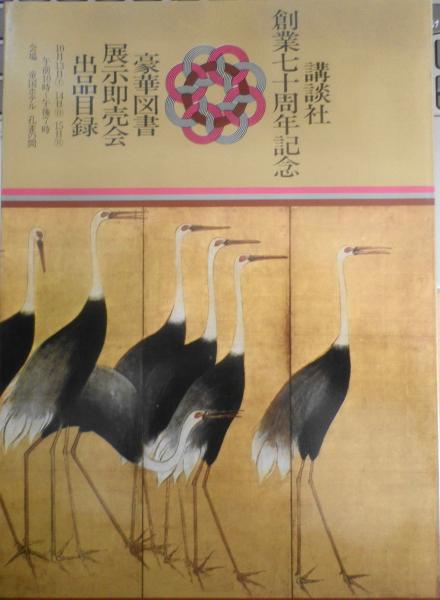 講談社
創業七十周年記念
豪華図書
展示即売会
出品目録
10月13日㈯ 14日㈰ 15日㈪
午前10時―午後7時
会場 帝国ホテル 孔雀の間